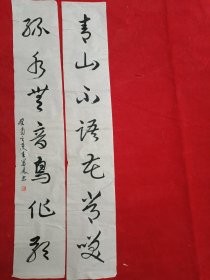 青山不语花常笑
绿水无音鸟作歌